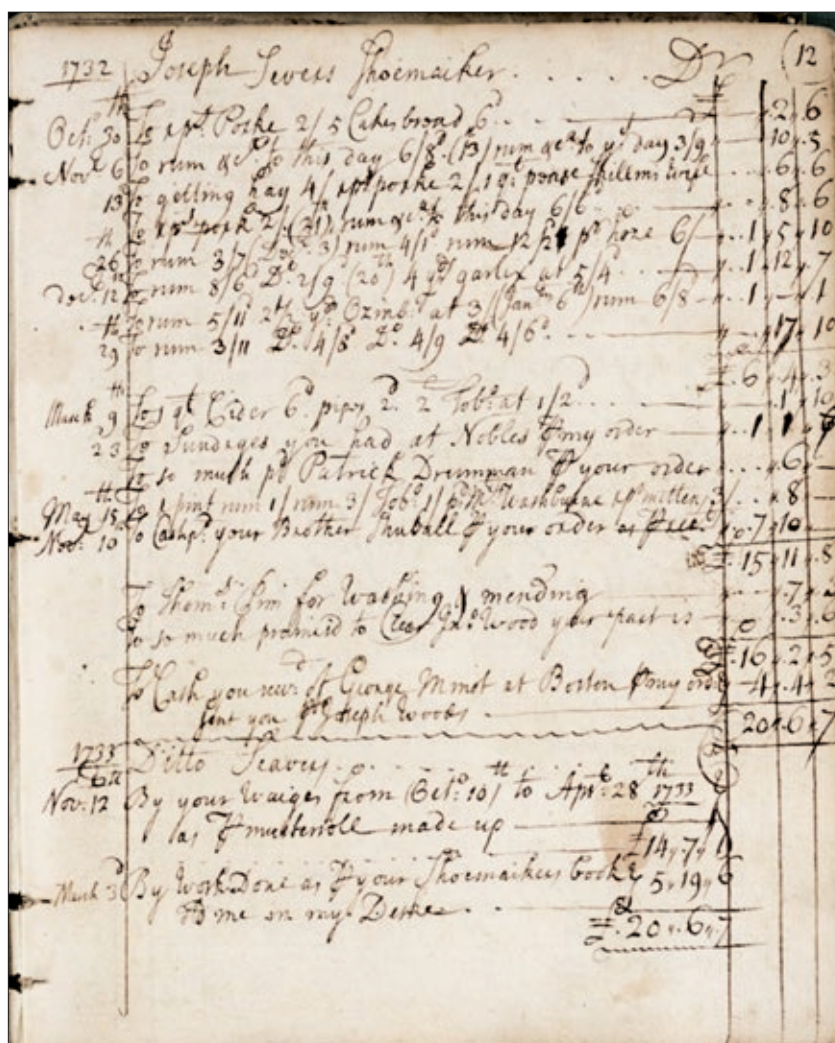 1732 Joseph Severs Shoemaker . . . . . Dr (12
Octr 30th To 1 pt Porke 2/5 Cakes bread 6d £ . . 2 . 6
Novr 6 To rum &c to this day 6/8d (13) rum &c to ye day 3/9 . . 10 . 5
13 To getting hay 4/ porke 2/ wife . . 6 . 6
To porke 2/ (21) rum &c to this day 6/6 . . 8 . 6
26th To rum 3/7 (Decr 3) rum 4/1d rum 12/2 pr hoze 6/ . . 1 . 5 . 10
Decr 12th To rum 8/6 Do 2/9 (20th) 4 yds garlex at 5/4d . . 1 . 12 . 7
To rum 5/11 2 1/2 yds Ozmbs at 3/ (Janr 6th) rum 6/8 . . 1 . . 1
29th To rum 3/11 Do 4/8 Do 4/9 Do 4/6d . . 17 . 10
£ . 6 . 4 . 3
March 9th To 1 qt Cider 6d pipes 2d 2 Tobo at 1/2d . . 1 . 10
23 To Sundages you had at Nobles my order . . 1 . 1
To so much pd Patrick Drumman your order . . 6
May 15th To 1 pint rum 1/ rum 3/ Tobo 1/ Washburne mittens 3/ . . 8
Novr 10 To Cash pd your Brother Shuball your order as . 7 . 10
£ . 15 . 11 . 8
To Thoms for Washing & mending . . 7
To so much promisd to Wood your part is 0 . 3 . 6
£ . 16 . 2 . 5
To Cash you recd of George Minot at Boston my order 4 . 4 . 2
sent you Joseph Woods
20 . 6 . 7
1733 Ditto Seavers
Novr 12 By your Waiges from (Octo 10)th to Aprl 28th 1733
as musterroll made up £14 . 7 . 1
March 3d By Work Done as your Shoemaikers booke 5 . 19 . 6
To me on my Deske
£ . 20 . 6 . 7